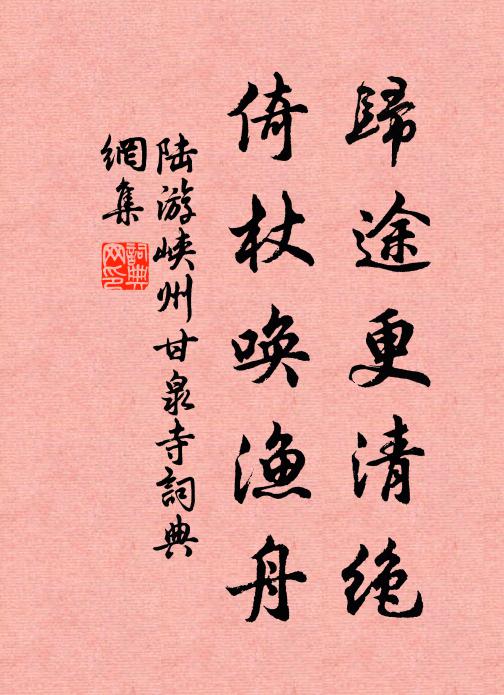 歸途更清绝
倚杖唤漁舟
陆游峡州甘泉寺詞典
網集
詞典
网印